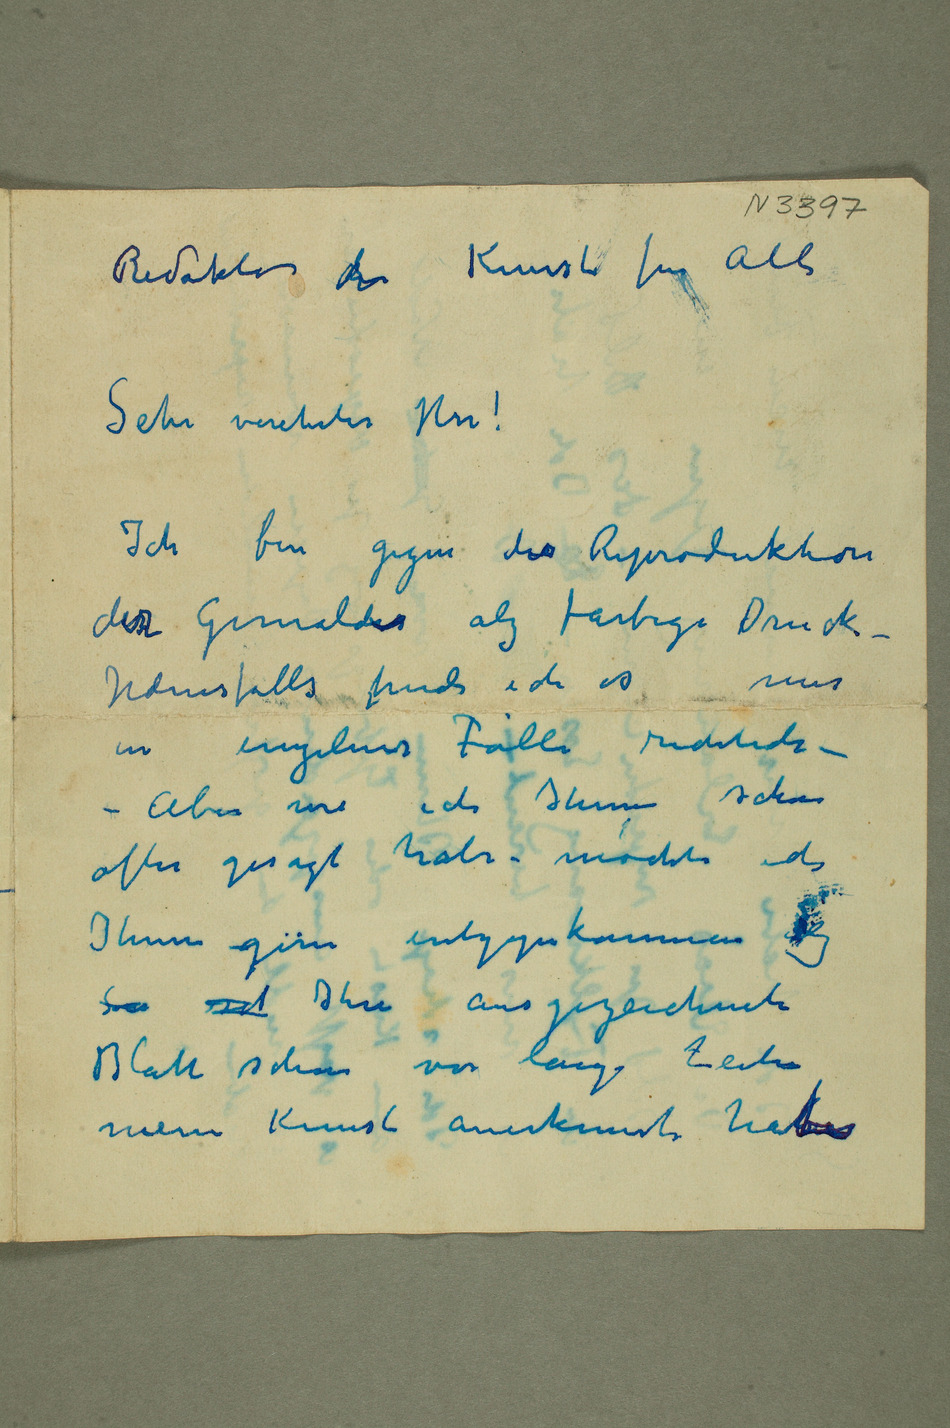 N 3397
Redaktor der Kunst für Alle
Sehr verehrter Herr!
Ich bin gegen die Reproduktion
der Gemaldes als farbige Druck –
Jedenfalls finde ich es nur
in einzelnes Fälle richtich –
– Aber wie ich Ihnen schon
ofter gesagt habe – möchte ich
Ihnen gern entgegenkommen
Ihre ausgezeichnete
Blatt schon vor lange Zeite
meine Kunst anerkennt hat